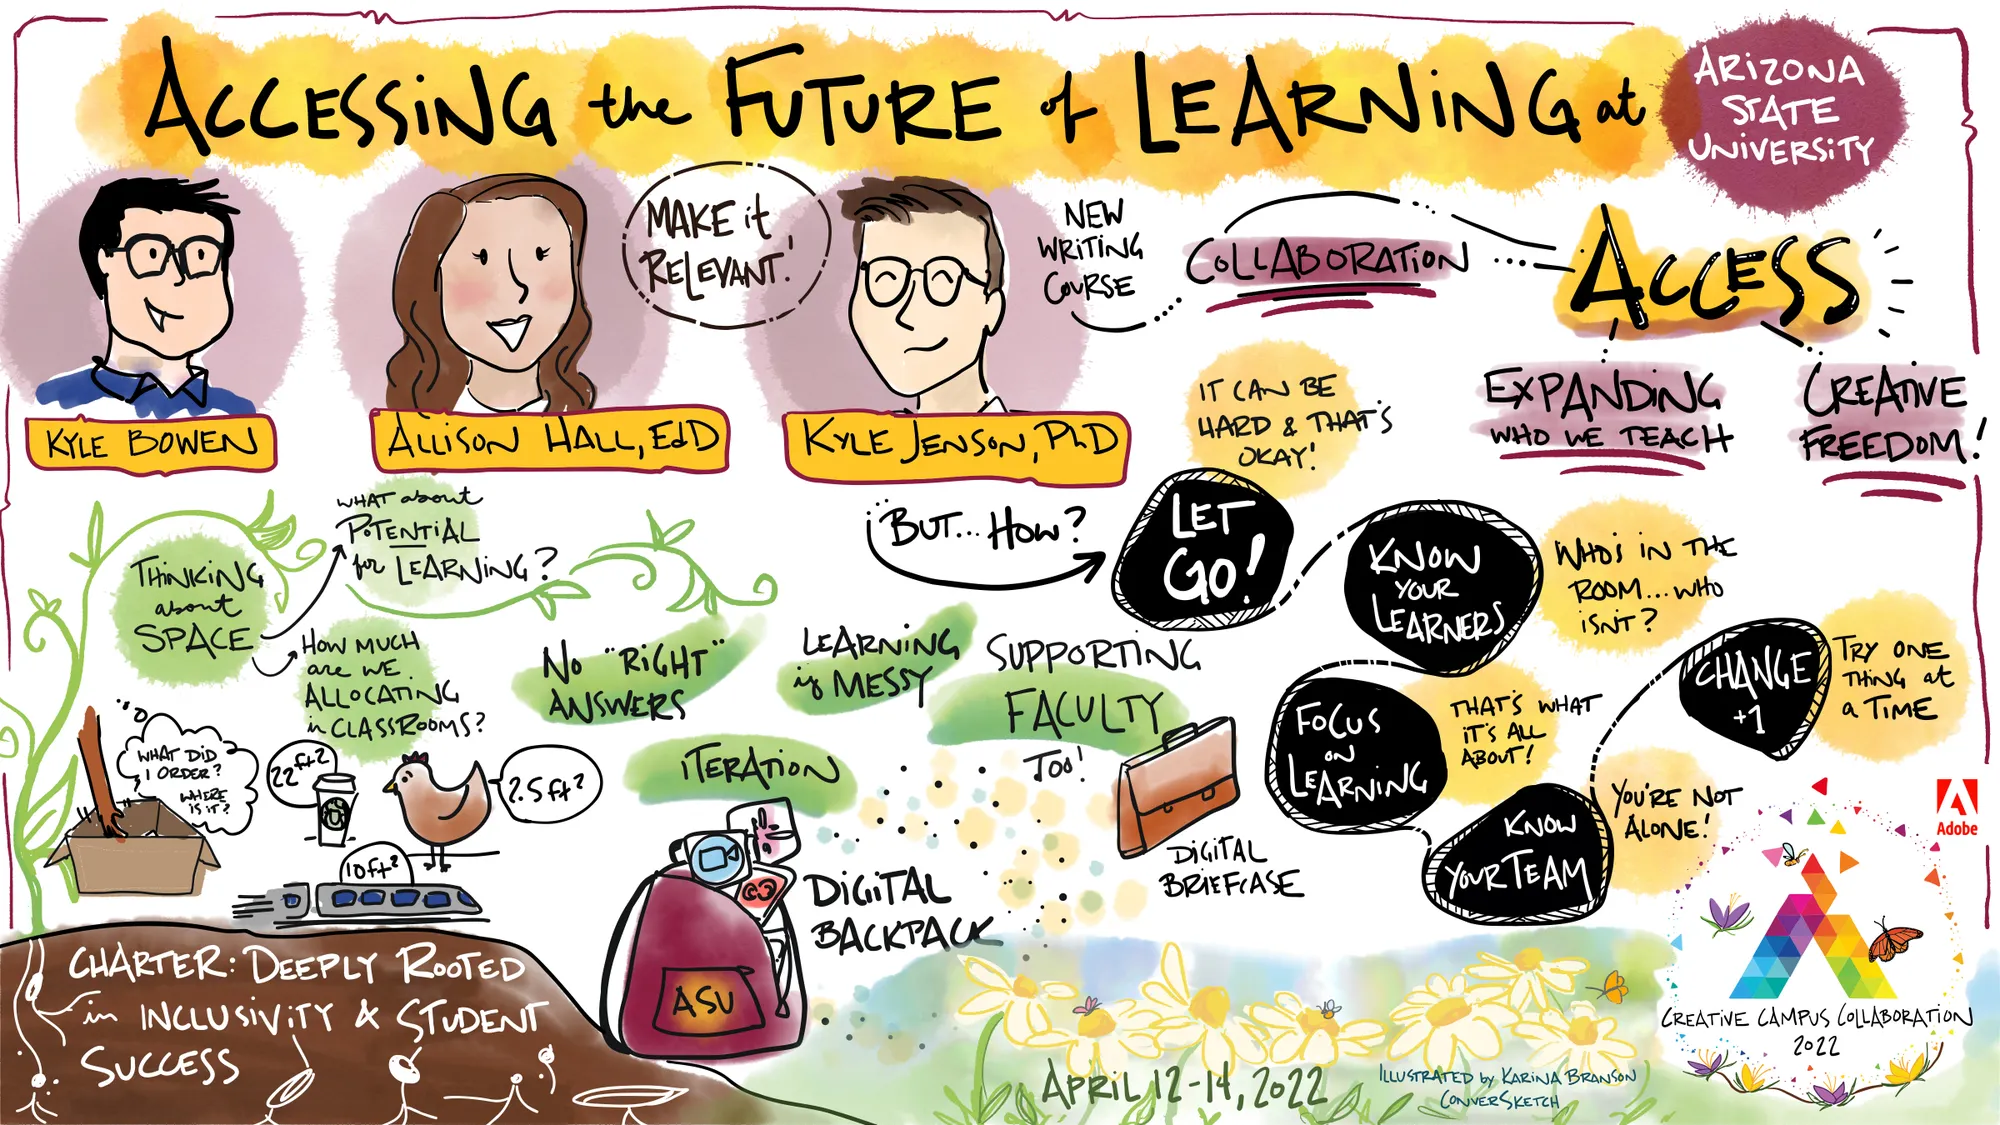 ACCESSING the FUTURE of LEARNING at
ARIZONA
STATE
UNIVERSITY
KYLE BOWEN
ALLISON HALL, EdD
MAKE it
RELEVANT!
KYLE JENSON, PhD
NEW
WRITING
COURSE
COLLABORATION
ACCESS
EXPANDING
WHO WE TEACH
CREATIVE
FREEDOM!
THINKING
about
SPACE
WHAT about
POTENTIAL
for LEARNING?
HOW MUCH
are WE
ALLOCATING
in CLASSROOMS?
WHAT DID
I ORDER?
WHERE
IS IT?
22 ft²
2.5 ft²
10 ft²
NO "RIGHT"
ANSWERS
LEARNING
is MESSY
ITERATION
SUPPORTING
FACULTY
TOO!
DIGITAL
BACKPACK
ASU
DIGITAL
BRIEFCASE
BUT... HOW?
LET
GO!
IT CAN BE
HARD & THAT'S
OKAY!
KNOW
YOUR
LEARNERS
WHO'S IN THE
ROOM... WHO
ISN'T?
FOCUS
ON
LEARNING
THAT'S WHAT
IT'S ALL
ABOUT!
KNOW
YOUR TEAM
YOU'RE NOT
ALONE!
CHANGE
+1
TRY ONE
THING at
a TIME
CHARTER: DEEPLY ROOTED
in INCLUSIVITY & STUDENT
SUCCESS
APRIL 12-14, 2022
ILLUSTRATED by KARINA BRANSON
CONVERSKETCH
Adobe
CREATIVE CAMPUS COLLABORATION
2022